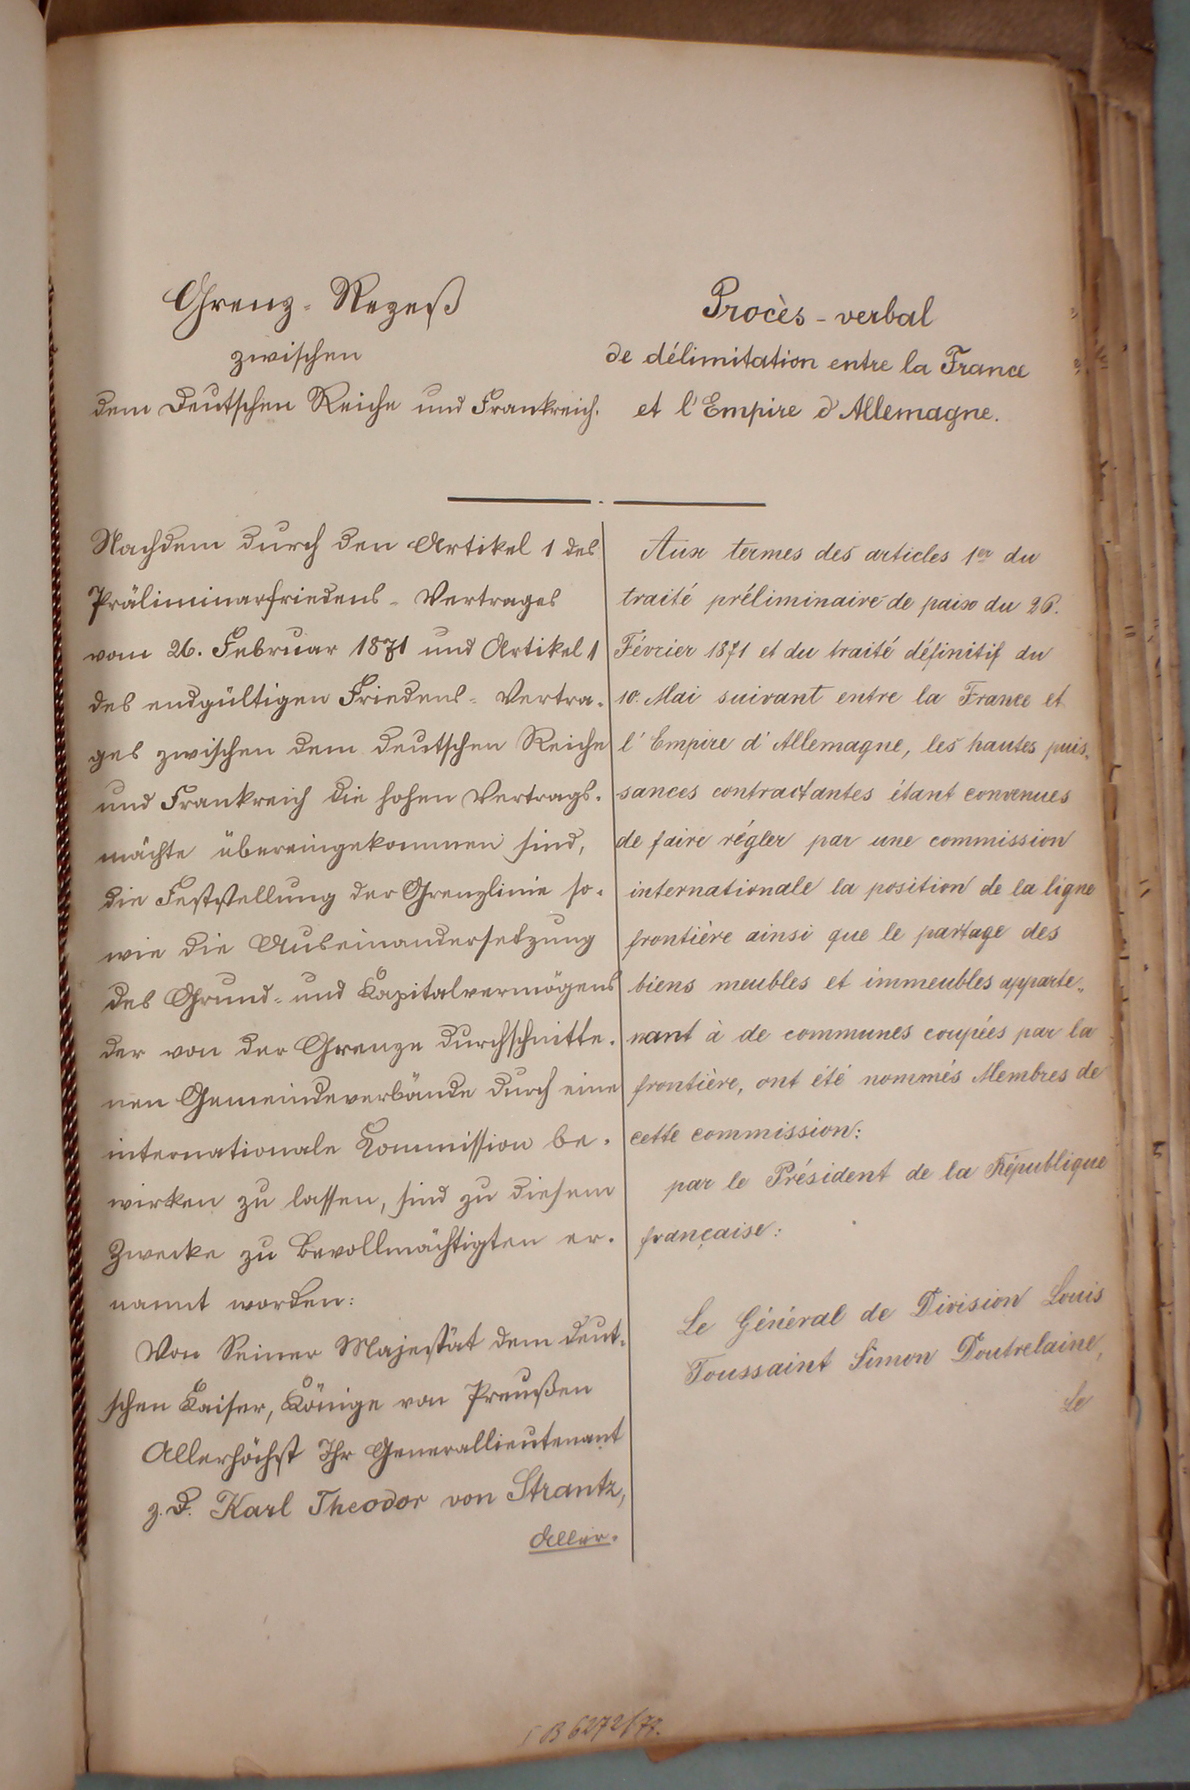 Grenz-Rezeß
zwischen
dem Deutschen Reiche und Frankreich.
Nachdem durch den Artikel 1 des
Präliminarfriedens-Vertrages
vom 26. Februar 1871 und Artikel 1
des endgültigen Friedens-Vertra-
ges zwischen dem Deutschen Reiche
und Frankreich die hohen Vertrags-
mächte übereingekommen sind,
die Feststellung der Grenzlinie so-
wie die Auseinandersetzung
des Grund- und Kapitalvermögens
der von der Grenze durchschnitte-
nen Gemeindeverbände durch eine
internationale Kommission be-
wirken zu lassen, sind zu diesem
Zwecke zu Bevollmächtigten er-
nannt worden:
Von Seiner Majestät dem Deut-
schen Kaiser, Könige von Preußen
Allerhöchst Ihr Generallieutenant
z. D. Karl Theodor von Strantz,
Aller-
Procès-verbal
de délimitation entre la France
et l'Empire d'Allemagne.
Aux termes des articles 1er du
traité préliminaire de paix du 26.
Février 1871 et du traité définitif du
10. Mai suivant entre la France et
l'Empire d'Allemagne, les hautes puis-
sances contractantes étant convenues
de faire régler par une commission
internationale la position de la ligne
frontière ainsi que le partage des
biens meubles et immeubles apparte-
nant à de communes coupées par la
frontière, ont été nommés Membres de
cette commission:
par le Président de la République
française:
Le Général de Division Louis
Toussaint Simon Doutrelaine,
Le
B 6272/78.